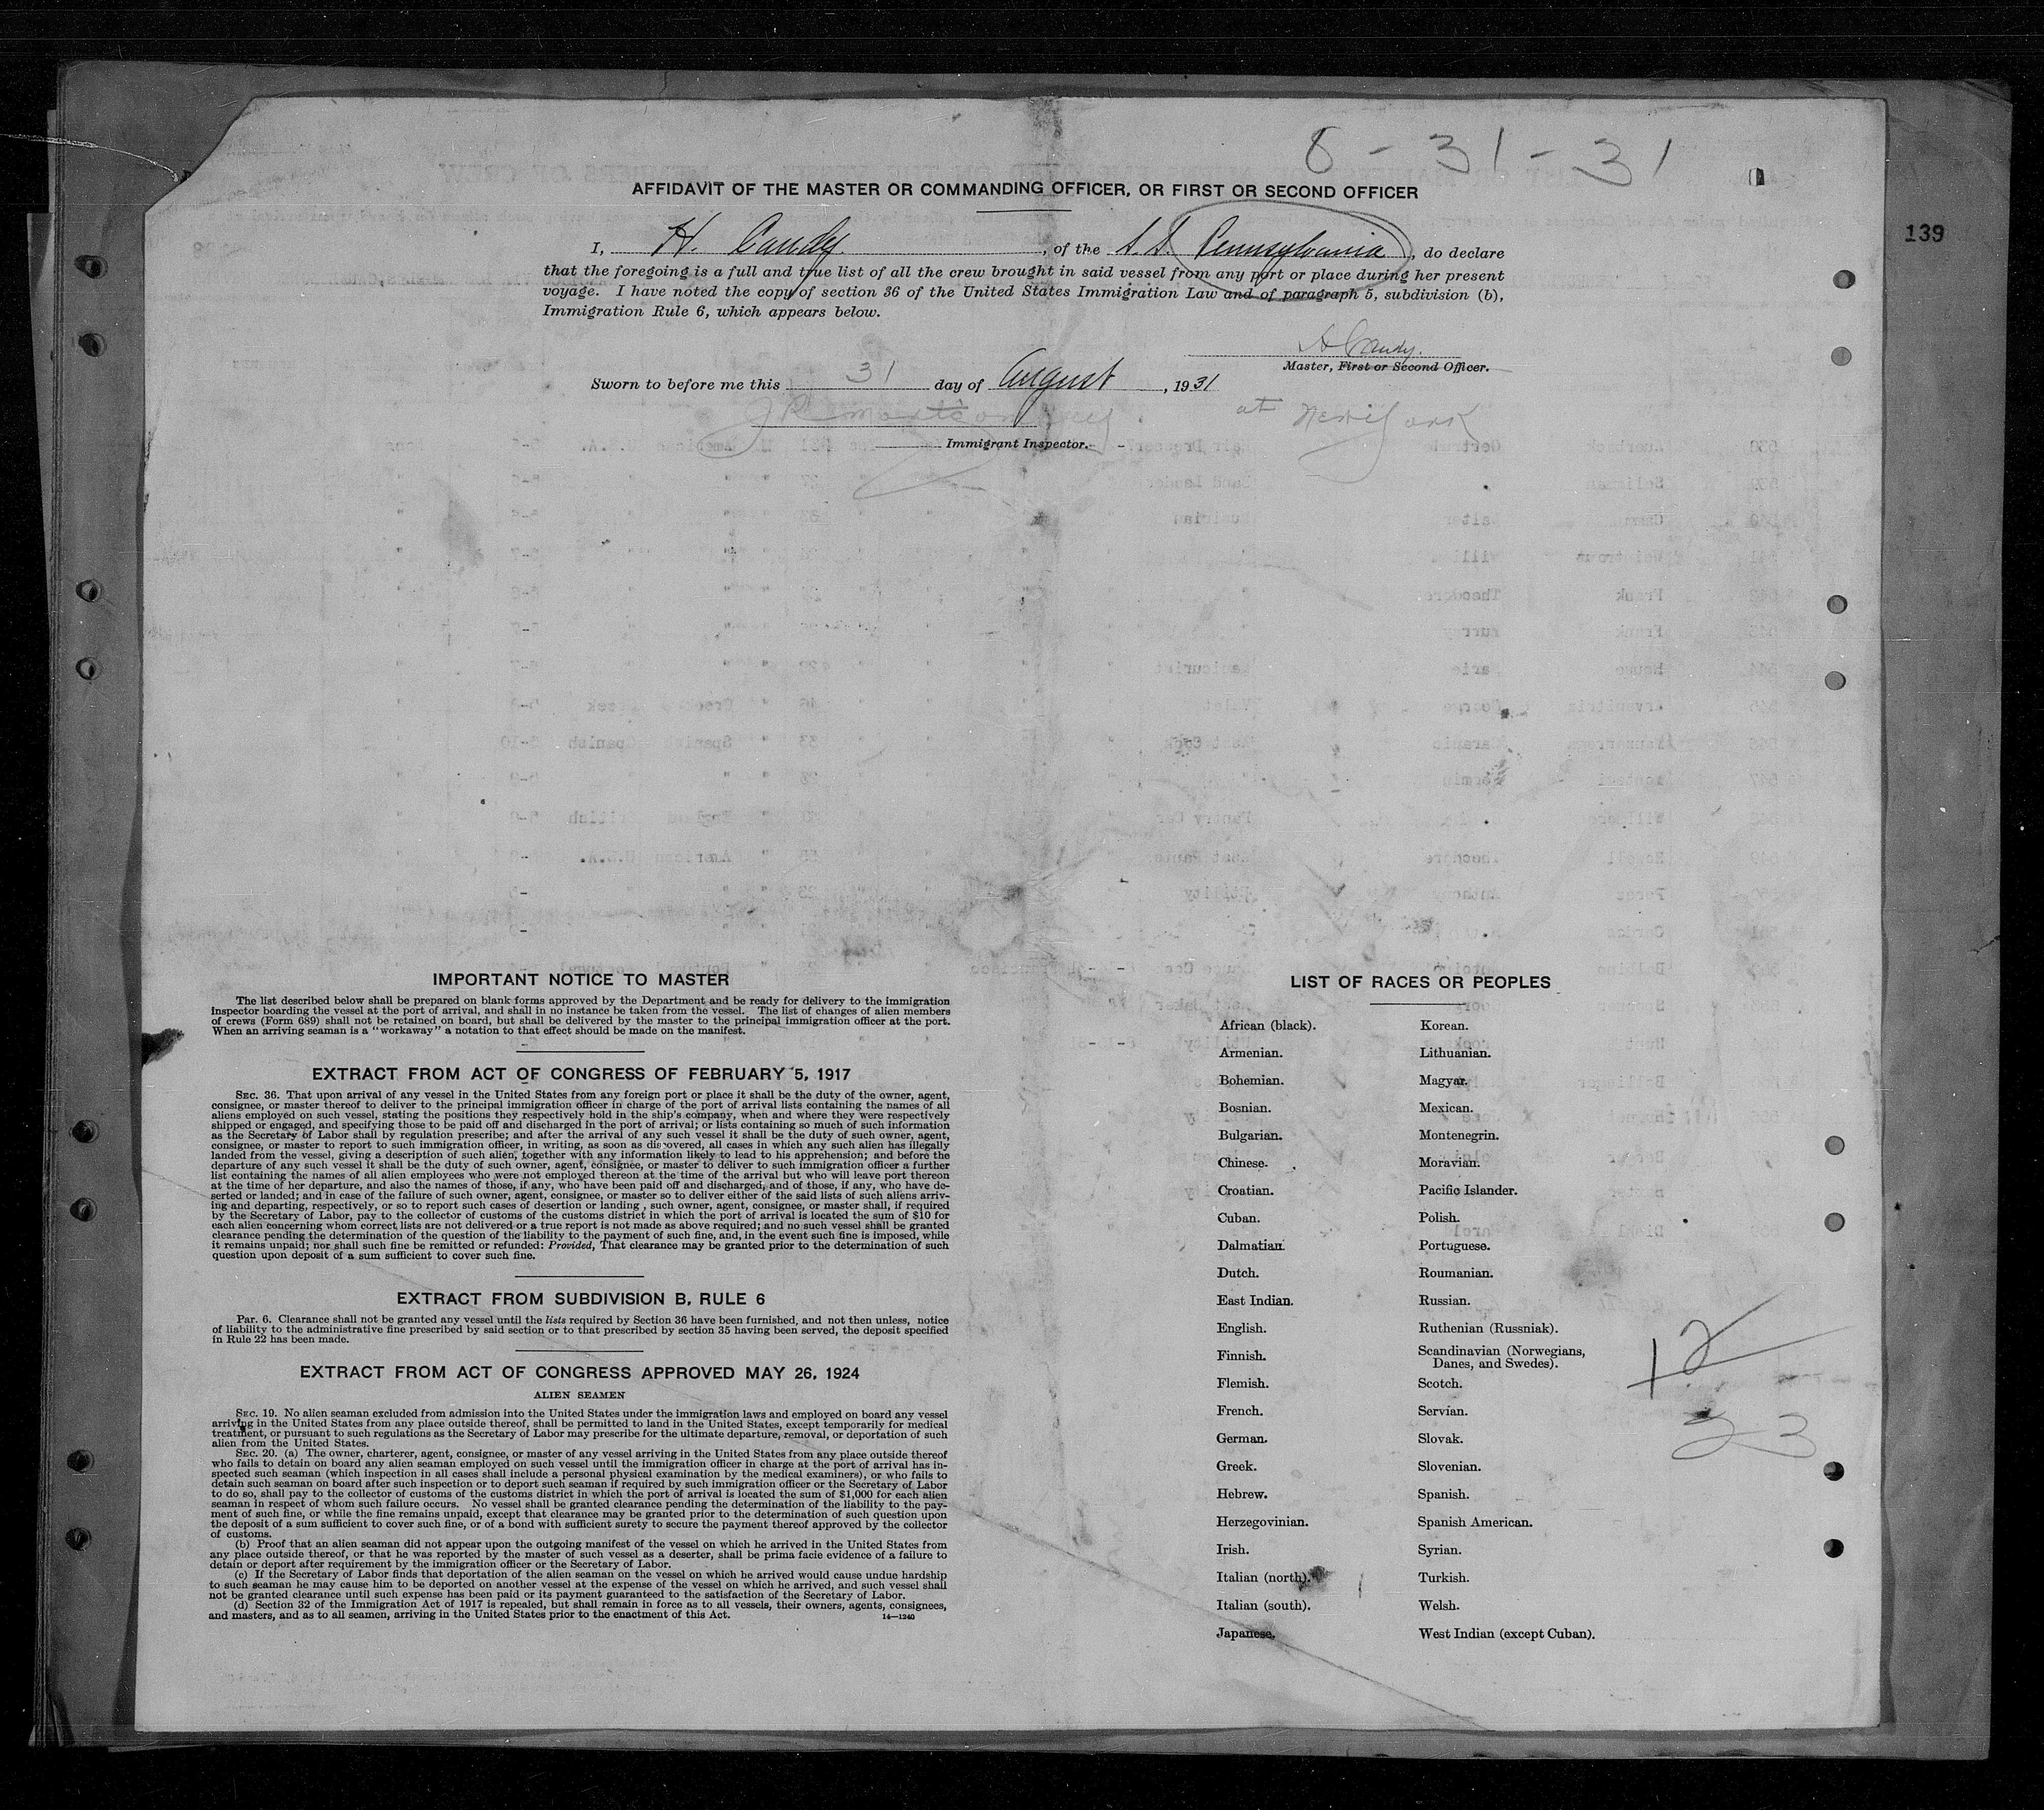 8-31-31
139
AFFIDAVIT OF THE MASTER OR COMMANDING OFFICER, OR FIRST OR SECOND OFFICER
I, H. Candy, of the S.S. Pennsylvania, do declare
that the foregoing is a full and true list of all the crew brought in said vessel from any port or place during her present
voyage. I have noted the copy of section 36 of the United States Immigration Law and of paragraph 5, subdivision (b),
Immigration Rule 6, which appears below.
H Candy.
Master, First or Second Officer.
Sworn to before me this 31 day of August, 1931
at New York
Immigrant Inspector.
IMPORTANT NOTICE TO MASTER
The list described below shall be prepared on blank forms approved by the Department and be ready for delivery to the immigration
Inspector boarding the vessel at the port of arrival, and shall in no instance be taken from the vessel. The list of changes of alien members
of crews (Form 689) shall not be retained on board, but shall be delivered by the master to the principal immigration officer at the port.
When an arriving seaman is a "workaway" a notation to that effect should be made on the manifest.
EXTRACT FROM ACT OF CONGRESS OF FEBRUARY 5, 1917
SEC. 36. That upon arrival of any vessel in the United States from any foreign port or place it shall be the duty of the owner, agent,
consignee, or master thereof to deliver to the principal immigration officer in charge of the port of arrival lists containing the names of all
aliens employed on such vessel, stating the positions they respectively hold in the ship's company, when and where they were respectively
shipped or engaged, and specifying those to be paid off and discharged in the port of arrival; or lists containing so much of such information
as the Secretary of Labor shall by regulation prescribe; and after the arrival of any such vessel it shall be the duty of such owner, agent,
consignee, or master to report to such immigration officer, in writing, as soon as discovered, all cases in which any such alien has illegally
landed from the vessel, giving a description of such alien, together with any information likely to lead to his apprehension; and before the
departure of any such vessel it shall be the duty of such owner, agent, consignee, or master to deliver to such immigration officer a further
list containing the names of all alien employees who were not employed thereon at the time of the arrival but who will leave port thereon
at the time of her departure, and also the names of those, if any, who have been paid off and discharged, and of those, if any, who have de-
serted or landed; and in case of the failure of such owner, agent, consignee, or master so to deliver either of the said lists of such aliens arriv-
ing and departing, respectively, or so to report such cases of desertion or landing, such owner, agent, consignee, or master shall, if required
by the Secretary of Labor, pay to the collector of customs of the customs district in which the port of arrival is located the sum of $10 for
each alien concerning whom correct lists are not delivered or a true report is not made as above required; and no such vessel shall be granted
clearance pending the determination of the question of the liability to the payment of such fine, and, in the event such fine is imposed, while
it remains unpaid; nor shall such fine be remitted or refunded: Provided, That clearance may be granted prior to the determination of such
question upon deposit of a sum sufficient to cover such fine.
EXTRACT FROM SUBDIVISION B, RULE 6
Par. 6. Clearance shall not be granted any vessel until the lists required by Section 36 have been furnished, and not then unless, notice
of liability to the administrative fine prescribed by said section or to that prescribed by section 35 having been served, the deposit specified
in Rule 22 has been made.
EXTRACT FROM ACT OF CONGRESS APPROVED MAY 26, 1924
ALIEN SEAMEN
SEC. 19. No alien seaman excluded from admission into the United States under the immigration laws and employed on board any vessel
arriving in the United States from any place outside thereof, shall be permitted to land in the United States, except temporarily for medical
treatment, or pursuant to such regulations as the Secretary of Labor may prescribe for the ultimate departure, removal, or deportation of such
alien from the United States.
SEC. 20. (a) The owner, charterer, agent, consignee, or master of any vessel arriving in the United States from any place outside thereof
who fails to detain on board any alien seaman employed on such vessel until the immigration officer in charge at the port of arrival has in-
spected such seaman (which inspection in all cases shall include a personal physical examination by the medical examiners), or who fails to
detain such seaman on board after such inspection or to deport such seaman if required by such immigration officer or the Secretary of Labor
to do so, shall pay to the collector of customs of the customs district in which the port of arrival is located the sum of $1,000 for each alien
seaman in respect of whom such failure occurs. No vessel shall be granted clearance pending the determination of the liability to the pay-
ment of such fine, or while the fine remains unpaid, except that clearance may be granted prior to the determination of such question upon
the deposit of a sum sufficient to cover such fine, or of a bond with sufficient surety to secure the payment thereof approved by the collector
of customs.
(b) Proof that an alien seaman did not appear upon the outgoing manifest of the vessel on which he arrived in the United States from
any place outside thereof, or that he was reported by the master of such vessel as a deserter, shall be prima facie evidence of a failure to
detain or deport after requirement by the immigration officer or the Secretary of Labor.
(c) If the Secretary of Labor finds that deportation of the alien seaman on the vessel on which he arrived would cause undue hardship
to such seaman he may cause him to be deported on another vessel at the expense of the vessel on which he arrived, and such vessel shall
not be granted clearance until such expense has been paid or its payment guaranteed to the satisfaction of the Secretary of Labor.
(d) Section 32 of the Immigration Act of 1917 is repealed, but shall remain in force as to all vessels, their owners, agents, consignees,
and masters, and as to all seamen, arriving in the United States prior to the enactment of this Act.
14—1240
LIST OF RACES OR PEOPLES
African (black).
Armenian.
Bohemian.
Bosnian.
Bulgarian.
Chinese.
Croatian.
Cuban.
Dalmatian.
Dutch.
East Indian.
English.
Finnish.
Flemish.
French.
German.
Greek.
Hebrew.
Herzegovinian.
Irish.
Italian (north).
Italian (south).
Japanese.
Korean.
Lithuanian.
Magyar.
Mexican.
Montenegrin.
Moravian.
Pacific Islander.
Polish.
Portuguese.
Roumanian.
Russian.
Ruthenian (Russniak).
Scandinavian (Norwegians,
Danes, and Swedes).
Scotch.
Servian.
Slovak.
Slovenian.
Spanish.
Spanish American.
Syrian.
Turkish.
Welsh.
West Indian (except Cuban).
12
23